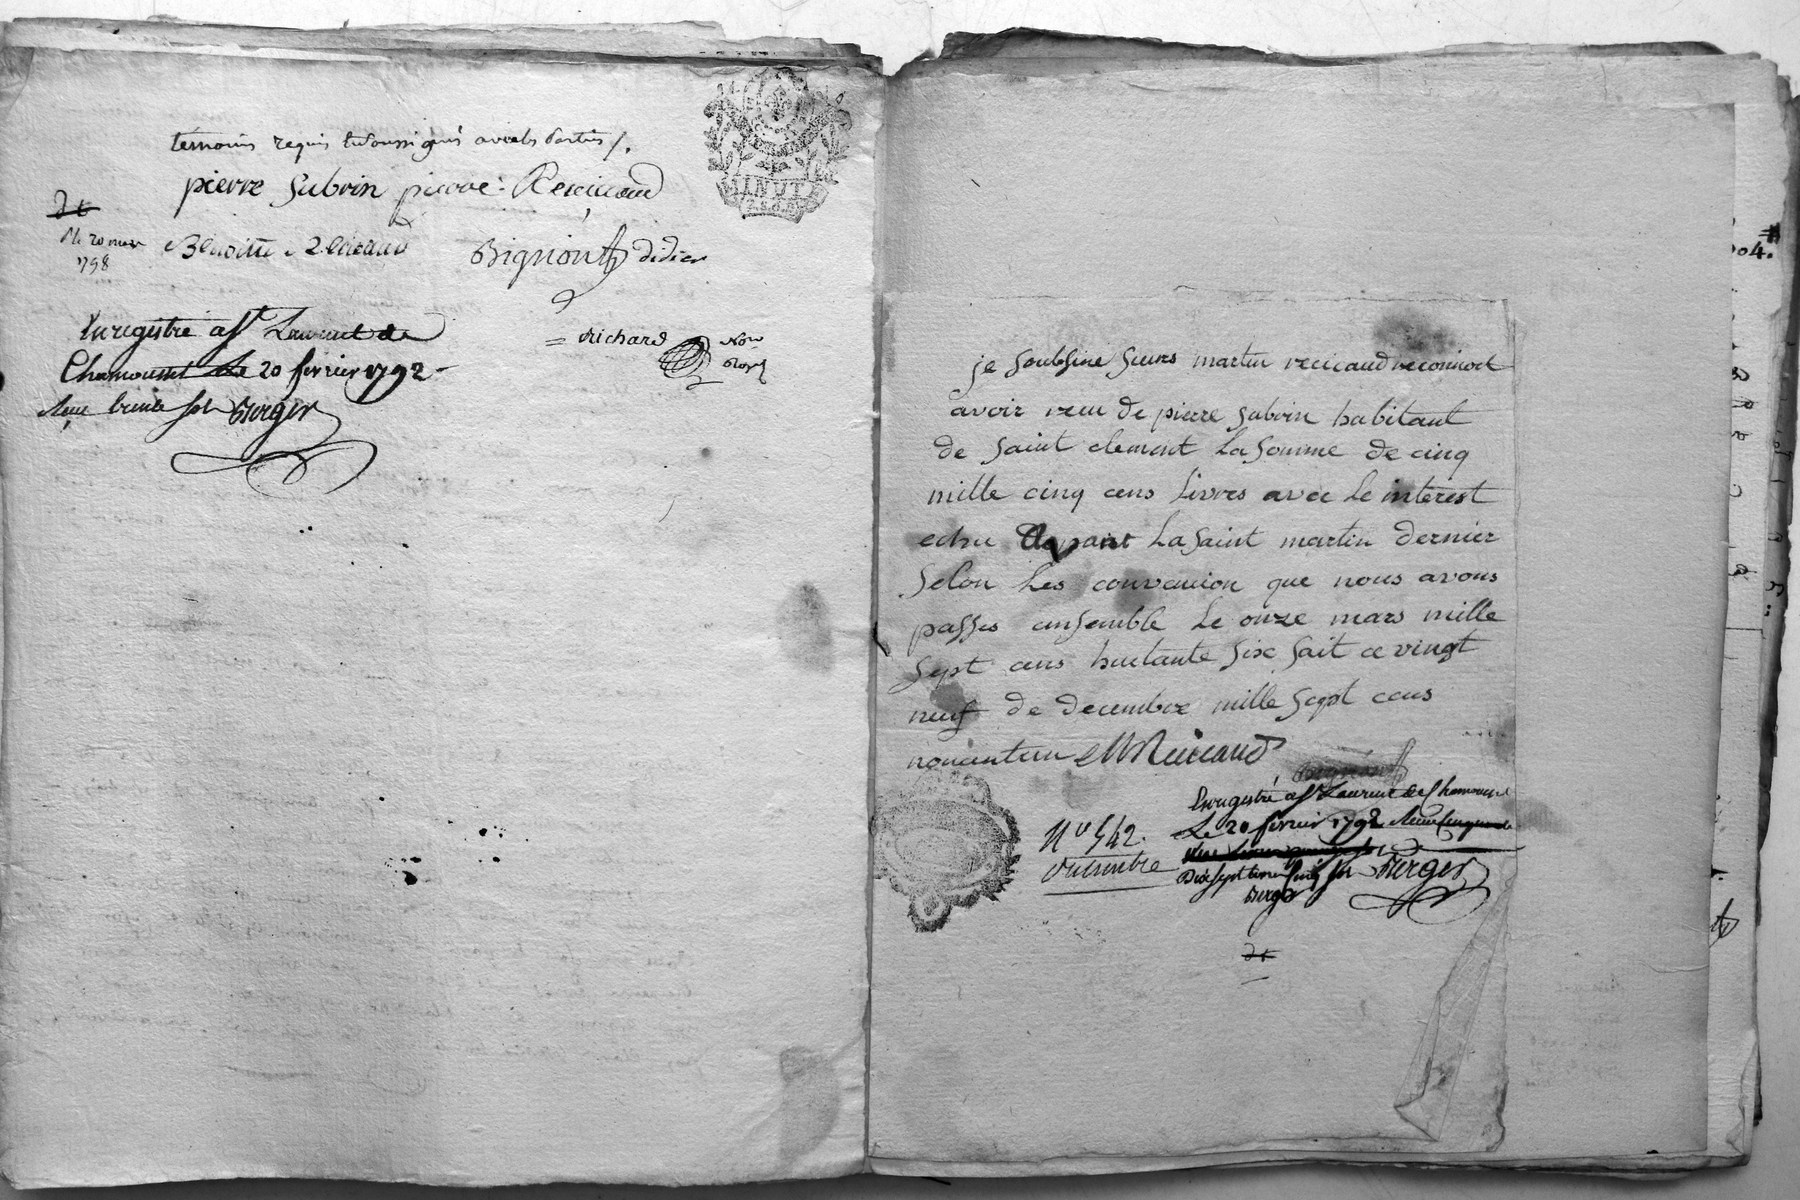 temoins requis et soussignés avec les parties /.
pierre subrin pierre Recicaud
dt
le 20 mars
1798
Benoitte Recicaud Bignont didier
= Richard Nore
Royal
Enregistré a St Laurent de
Chamousset Le 20 fevrier 1792
Reçu trente sols Berger
MINUTE
je soubsine sieurs martin recicaud reconnoet
avoir reeu de pierre subrin habitant
de saint clement La somme de cinq
mille cinq cens Livres avec Le interest
echu La saint martin dernier
selon Les convencion que nous avons
passes ensemble Le onze mars mille
sept cens huitante six fait ce vingt
neuf de decembre mille sept cens
nonantun M Recicaud
Enregistré a St Laurent de Chamousset
Le 20 fevrier 1792 Reçu
Dix sept livres cinq sols Berger
Berger
N° 542.
dt
04.